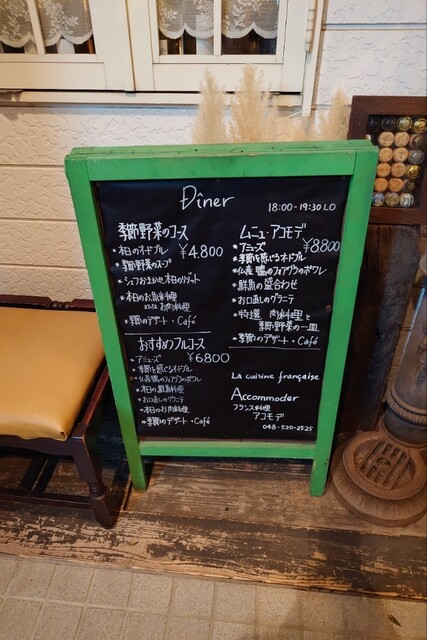 Dîner
18:00-19:30 LO
季節野菜のコース
¥4.800
・本日のオードブル
・季節野菜のスープ
・シェフおまかせ本日のリゾット
・本日のお魚料理
または お肉料理
・季節のデザート・Café
おすすめフルコース
¥6800
・アミューズ
・季節を感じるオードブル
・仏産鴨のフォアグラのポワレ
・本日の鮮魚料理
・お口直しのグラニテ
・本日のお肉料理
・季節のデザート・Café
ムニュ・アコモデ
¥8800
・アミューズ
・季節を感じるオードブル
・仏産 鴨のフォアグラのポワレ
・鮮魚の盛合わせ
・お口直しのグラニテ
・特選 肉料理と
季節野菜の一皿
・季節のデザート・Café
La cuisine française
Accommoder
フランス料理
アコモデ
048-520-2525